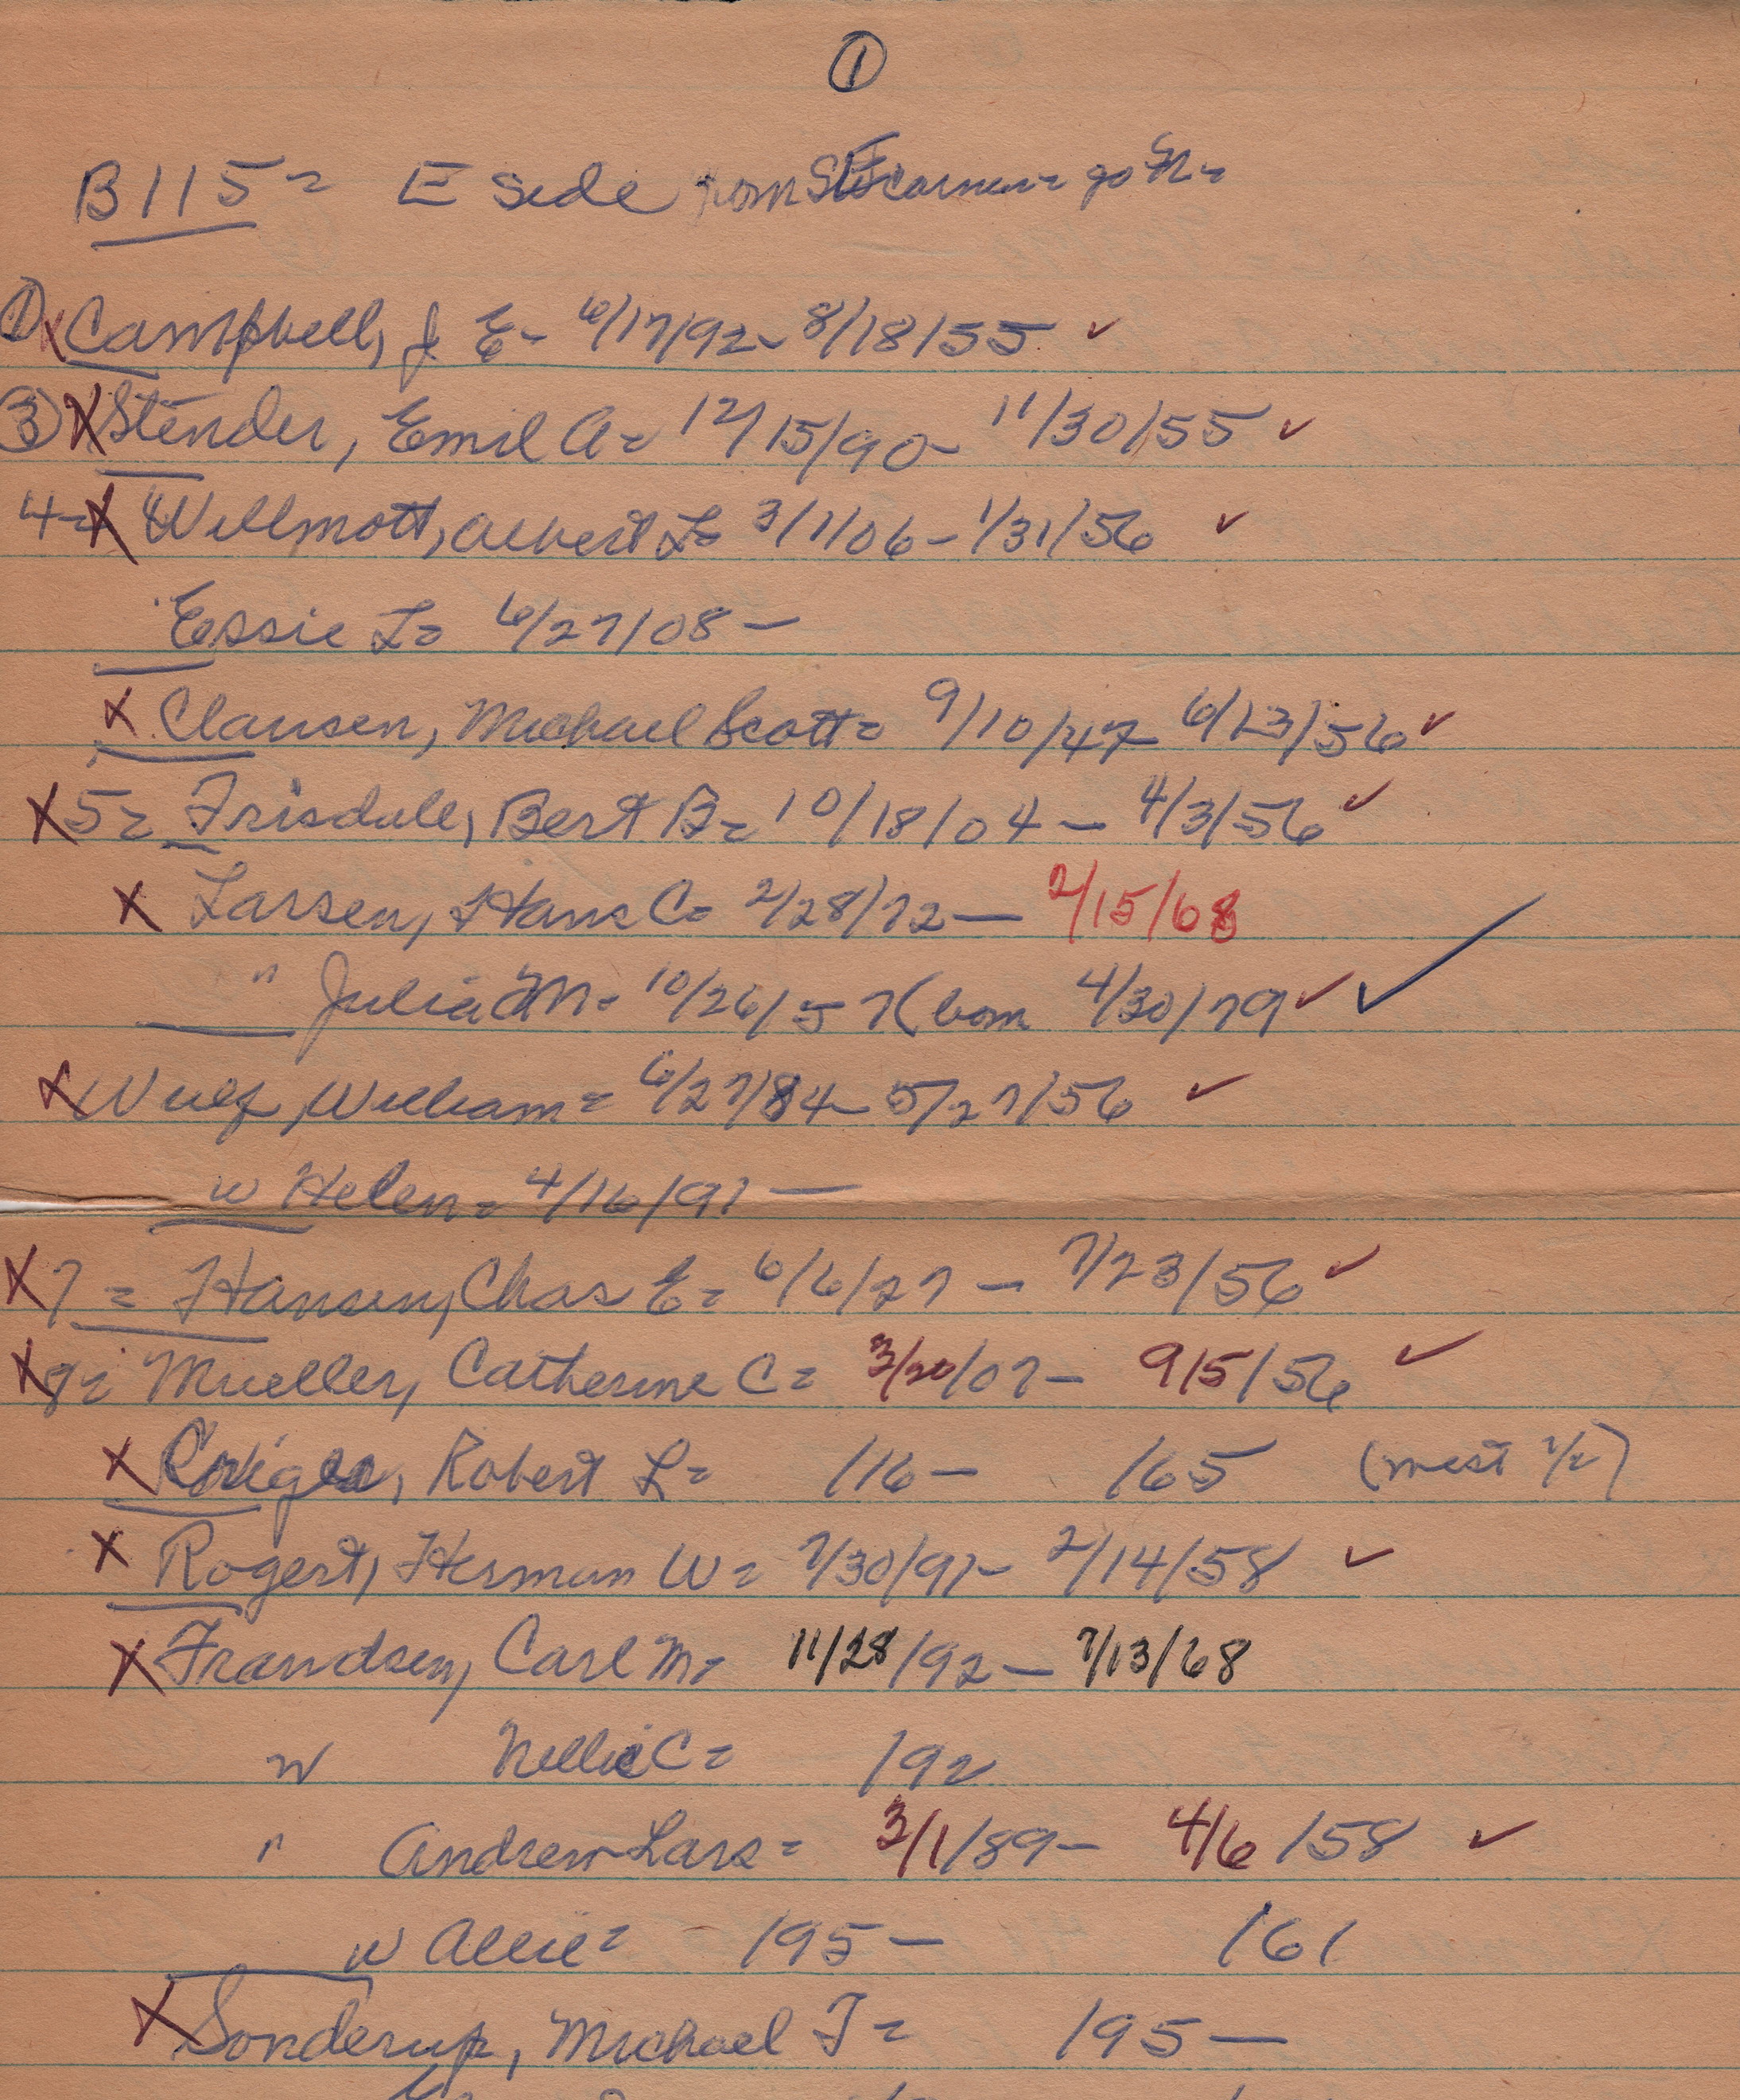 ①
B115 = E side from SE corner = go N =
① X Campbell, J. E - 6/17/92 - 8/18/55 ✓
③ X Stender, Emil A = 12/15/90 - 11/30/55 ✓
4 = X Willmott, Albert L = 3/1/06 - 1/31/56 ✓
Essie L = 6/27/08 —
X Clausen, Michael Scott = 9/10/47 - 6/13/56 ✓
X 5 = Frisdale, Bert B = 10/18/04 — 4/3/56 ✓
X Larsen, Hans C = 2/28/72 — 2/15/68
" Julia M = 10/26/57 (born 4/30/79 ✓ ✓
X Wulf, William = 6/27/84 - 5/27/56 ✓
w Helen = 4/16/91 —
X 7 = Hansen, Chas E = 6/6/27 — 7/23/56 ✓
X 8 = Mueller, Catherine C = 3/20/07 — 9/5/56 ✓
X Robert L = /16 — /65 (mest 1/2)
X Rogert, Herman W = 7/30/91 - 2/14/58 ✓
X Frandsen, Carl M = 11/28/92 — 7/13/68
w Nellie C = /92
" Andrew Lars = 3/1/89 - 4/6/58 ✓
w Allie = /95 — /61
X Sonderup, Michael T = /95 —